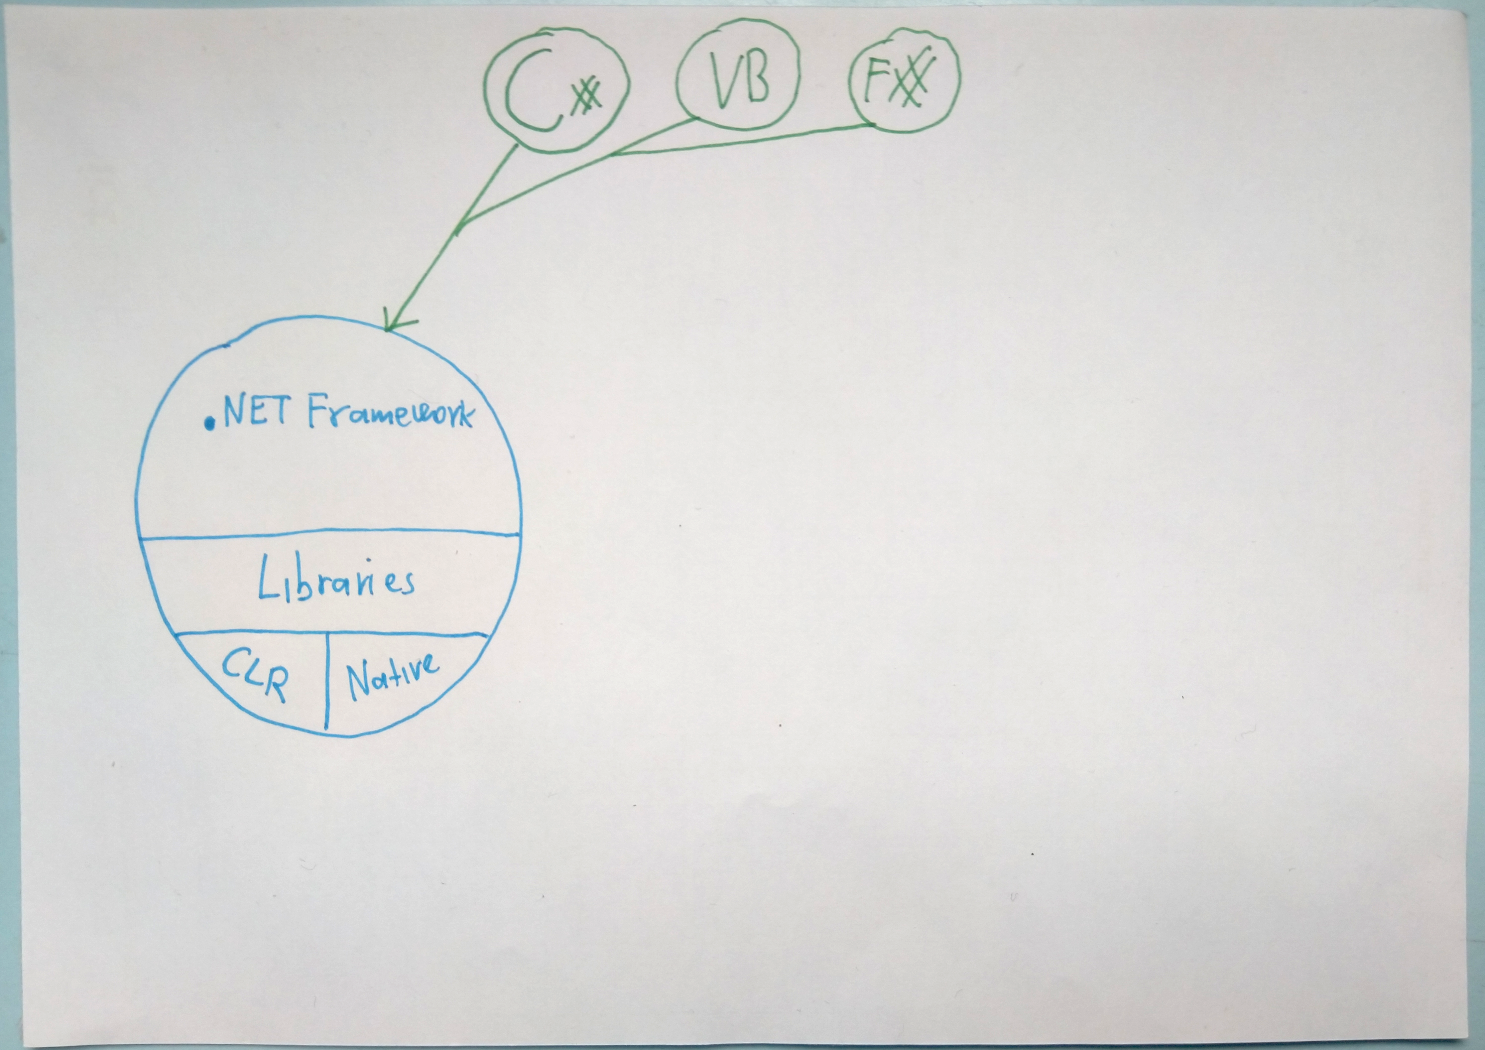 C#
VB
F#
.NET Framework
Libraries
CLR
Native